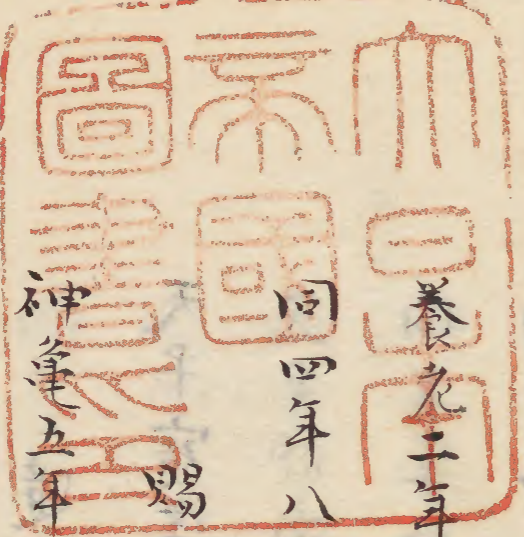 大日本
帝國
圖書印
養老二年
同四年八
賜
神亀五年